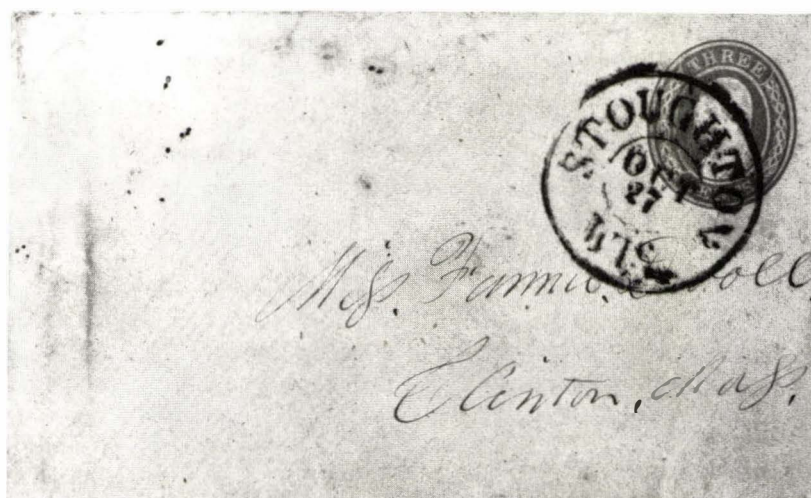 THREE
STOUGHTON
OCT
27
Miss. Fannie
Clinton, Mass.